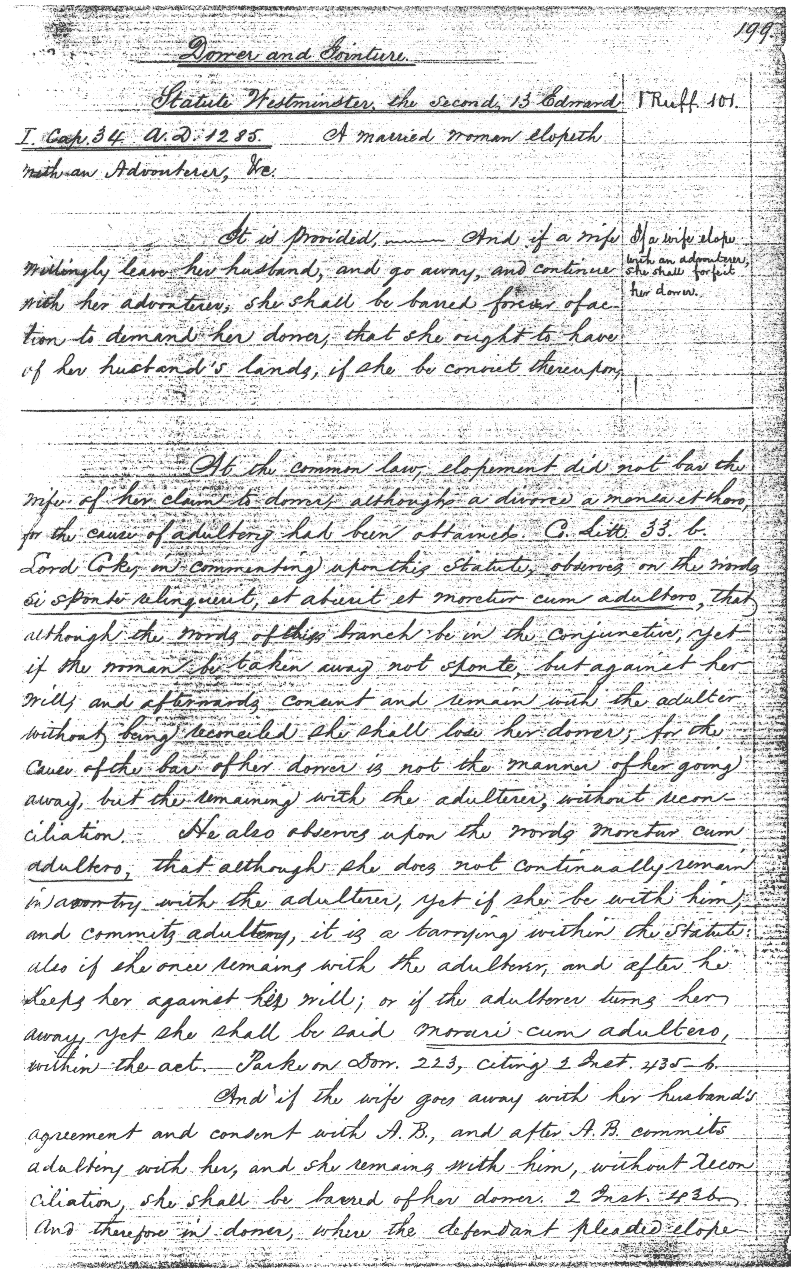 199.
Dower and Jointure.
Statute Westminster, the second, 13 Edward
1 Ruff. 101.
I. Cap. 34 A.D. 1285. A married woman elopeth
with an Advouterer, &c.
It is provided, —— And if a wife
willingly leave her husband, and go away, and continue
with her advouterer, she shall be barred forever of ac-
tion to demand her dower, that she ought to have
of her husband's lands, if she be convict thereupon,
If a wife elope
with an advouterer,
she shall forfeit
her dower.
At the common law, elopement did not bar the
wife of her claim to dower, although a divorce a mensa et thoro,
for the cause of adultery had been obtained. C. Litt. 33. b.
Lord Coke, in commenting upon this Statute, observes on the words
si sponte reliquerit, et abierit et moretur cum adultero, that
although the words of this branch be in the conjunctive, yet
if the woman be taken away not sponte, but against her
will, and afterwards consent and remain with the adulter
without being reconciled she shall lose her dower; for the
cause of the bar of her dower is not the manner of her going
away, but the remaining with the adulterer, without recon-
ciliation. He also observes upon the words moretur cum
adultero, that although she does not continually remain
in with the adulterer, yet if she be with him,
and commits adultery, it is a tarrying within the Statute:
also if she once remains with the adulterer, and after he
keeps her against her will; or if the adulterer turns her
away, yet she shall be said morari cum adultero,
within the act. Park on Dow. 223, citing 2 Inst. 435-6.
And if the wife goes away with her husband's
agreement and consent with A.B., and after A.B. commits
adultery with her, and she remains with him, without recon
ciliation, she shall be barred of her dower. 2 Inst. 436.
And therefore in dower, where the defendant pleaded elope